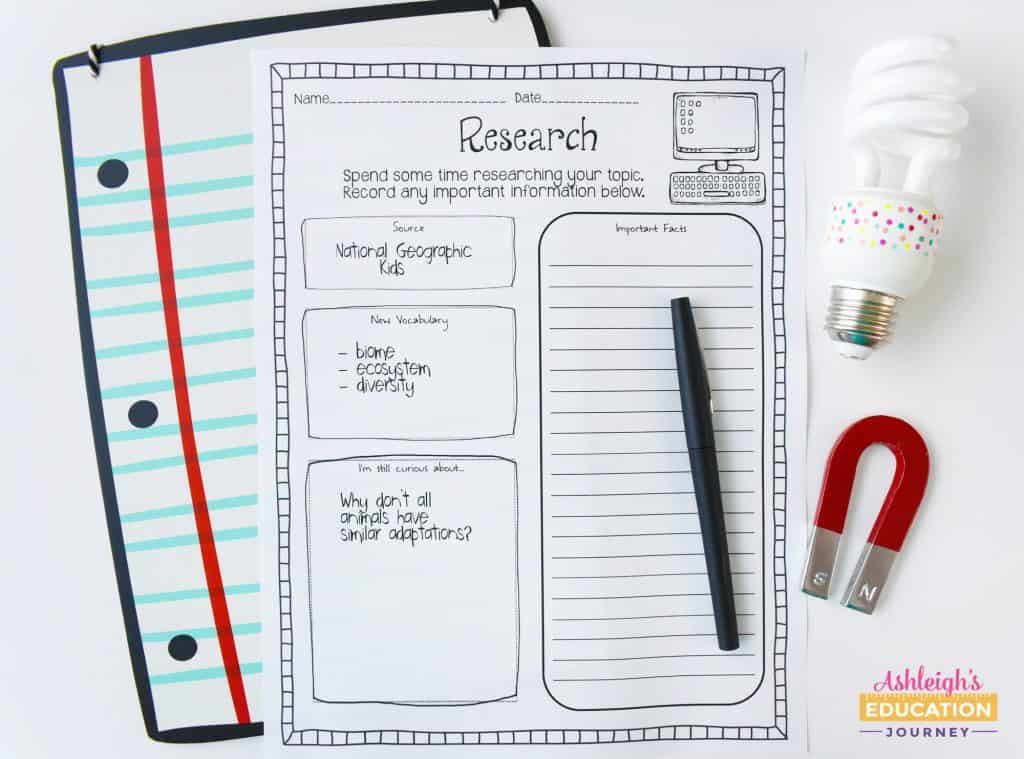 Name________________________ Date_____________
Research
Spend some time researching your topic.
Record any important information below.
Source
National Geographic
Kids
New Vocabulary
- biome
- ecosystem
- diversity
I'm still curious about...
Why don't all
animals have
similar adaptations?
Important Facts
S N
Ashleigh's
EDUCATION
JOURNEY